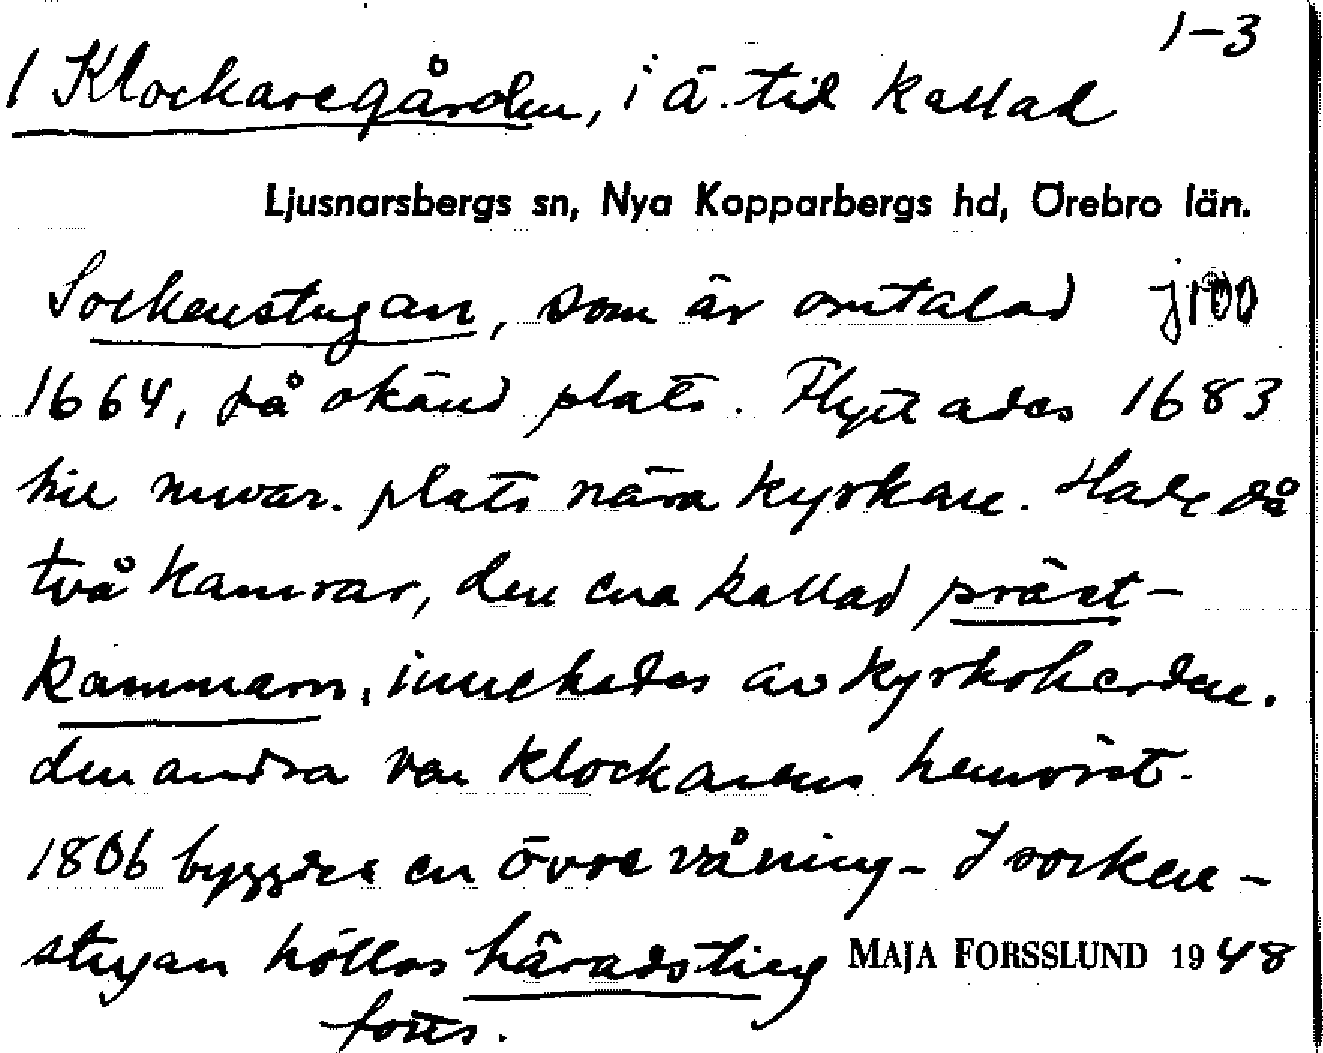 1-3
1 Klockaregården, i ä. tid kallad
Ljusnarsbergs sn, Nya Kopparbergs hd, Örebro län.
Sockenstugan, som är omtalad
1664, på okänd plats. Flyttades 1683
till nuvar. plats nära kyrkan. Hade då
två kamrar, den ena kallad präst-
kammarn, innehades av kyrkoherden.
den andra var klockarens hemvist.
1806 byggdes en övre våning - I socken-
stugan höllos häradsting
MAJA FORSSLUND 1948
forts.